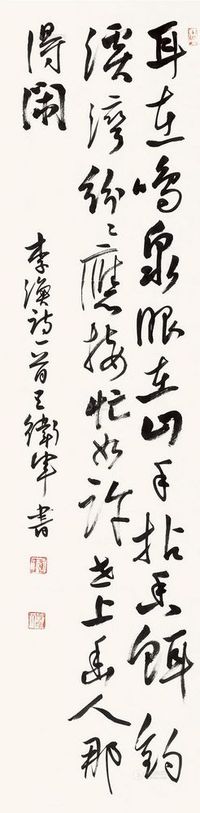 耳在鳴泉眼在山手拈香餌釣
溪灣紛々應接忙如許世上幽人那
得閑
李漁詩一首王衛軍書